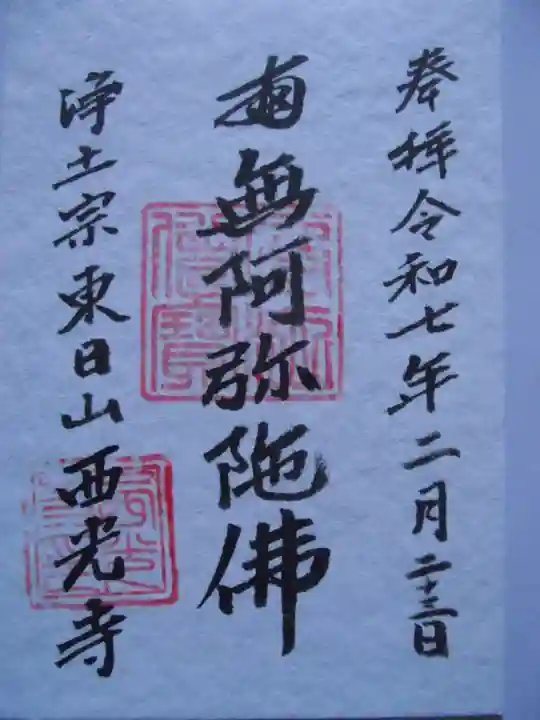 奉拝令和七年二月二十三日
南無阿弥陀佛
浄土宗東日山西光寺